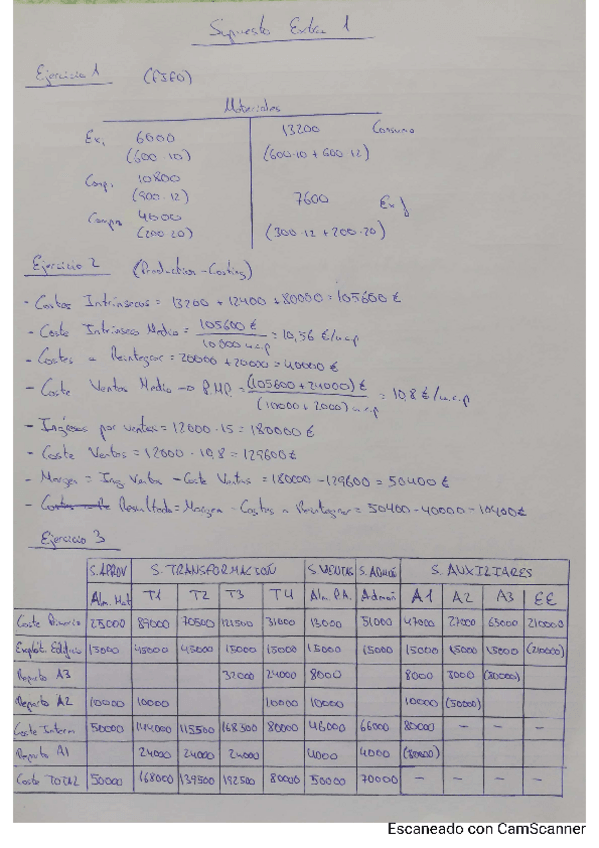 Supuesto Extra 1
Ejercicio 1 (FIFO)
Materiales
Ex. 6000 13200 Consumo
(600·10) (600·10 + 600·12)
Comp. 10800
(900·12) 7600 Ex f
Compra 4000
(200·20) (300·12 + 200·20)
Ejercicio 2 (Production-Costing)
- Costos Intrínsecos = 13200 + 12400 + 80000 = 105600 €
- Coste Intrínseco Medio = 105600 € / 10000 u.c.p = 10,56 €/u.c.p
- Costes a Reintegrar = 20000 + 20000 = 40000 €
- Coste Ventas Medio → P.M.P. = (105600 + 24000) € / (10000 + 2000) u.c.p = 10,8 €/u.c.p
- Ingresos por ventas = 12000 · 15 = 180000 €
- Coste Ventas = 12000 · 10,8 = 129600 €
- Margen = Ing Ventas - Coste Ventas = 180000 - 129600 = 50400 €
- Resultado = Margen - Costes a Reintegrar = 50400 - 40000 = 10400 €
Ejercicio 3
S. APROV S. TRANSFORMACIÓN S. VENTAS S. ADMÓN S. AUXILIARES
Alm. Mat T1 T2 T3 T4 Alm. P.A. Admón A1 A2 A3 EE
Coste Primario 25000 89000 70500 121500 31000 13000 51000 47000 27000 65000 210000
Explot. Edificio 15000 45000 45000 15000 15000 15000 15000 15000 15000 15000 (210000)
Reparto A3 32000 24000 8000 8000 8000 (80000)
Reparto A2 10000 10000 10000 10000 10000 (50000)
Coste Interm 50000 144000 115500 168500 80000 46000 66000 80000 - - -
Reparto A1 24000 24000 24000 4000 4000 (80000)
Coste TOTAL 50000 168000 139500 192500 80000 50000 70000 - - - -
Escaneado con CamScanner